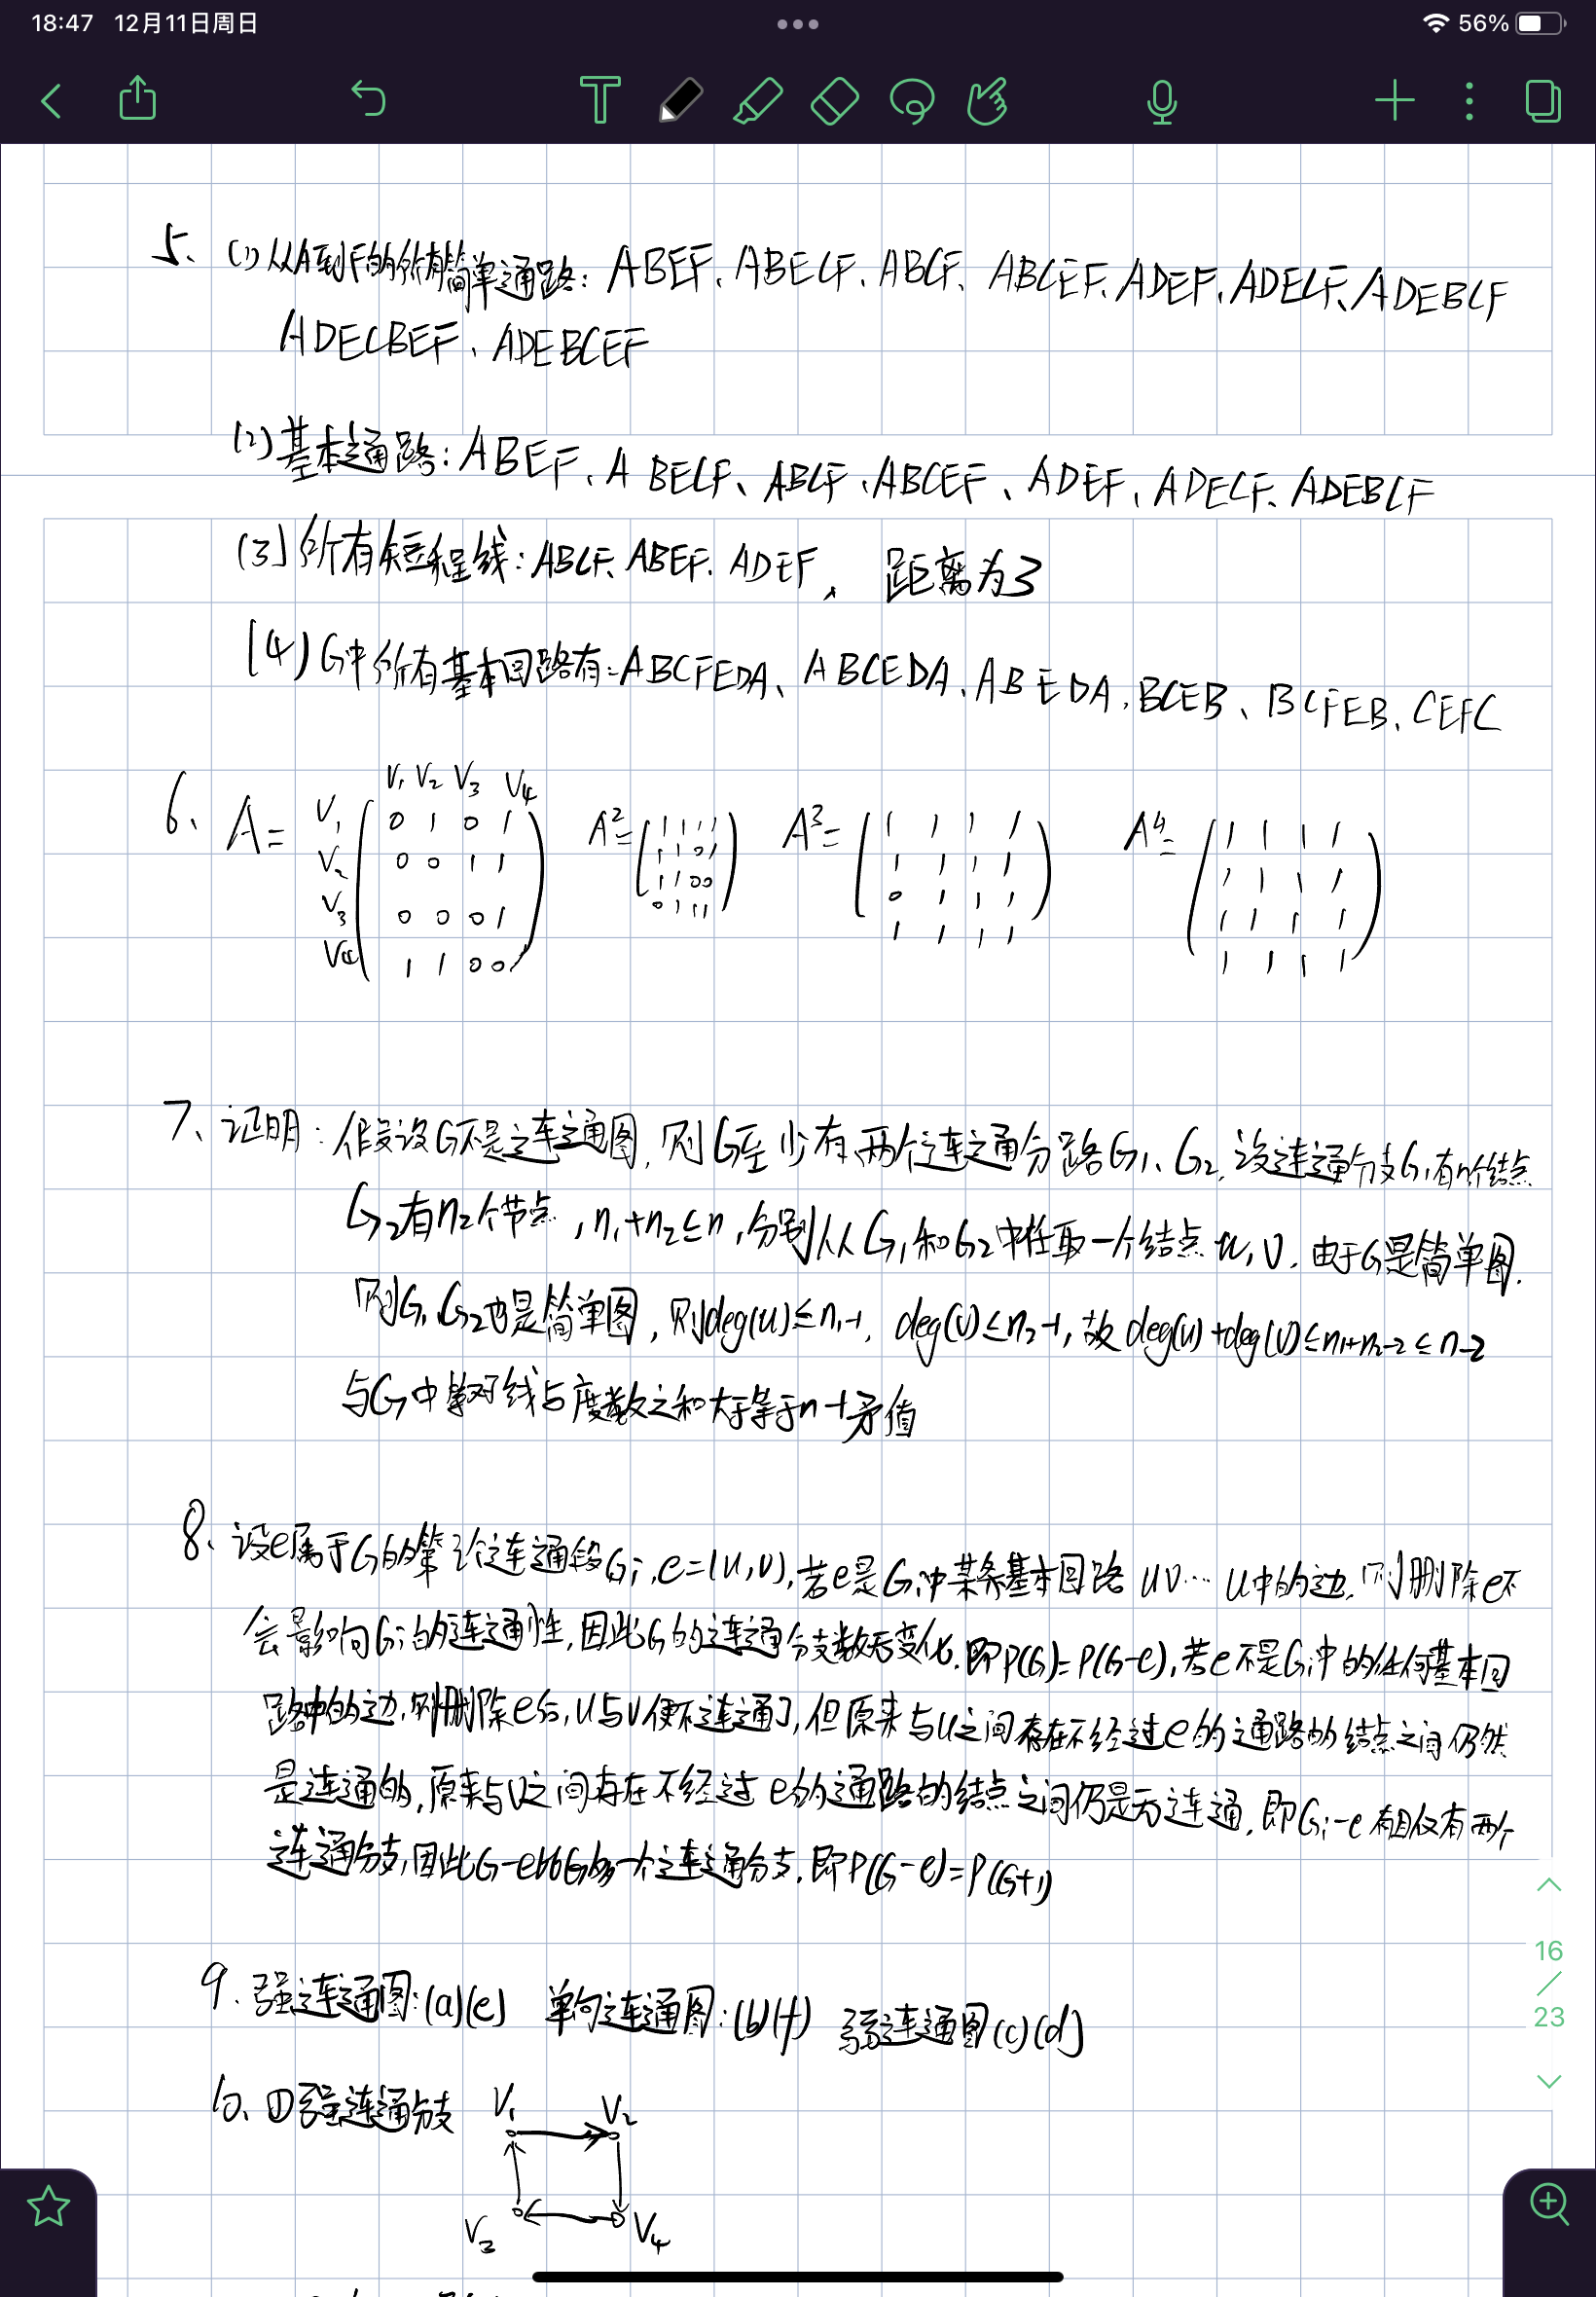 18:47 12月11日周日
56%
5、(1)从A到F的所有简单通路：ABEF、ABECF、ABCF、ABCEF、ADEF、ADECF、ADEBCF
ADECBEF、ADEBCEF
(2)基本通路：ABEF、ABECF、ABCF、ABCEF、ADEF、ADECF、ADEBCF
(3)所有短程线：ABCF、ABEF、ADEF，距离为3
(4)G中所有基本回路有：ABCFEDA、ABCEDA、ABEDA、BCEB、BCFEB、CEFC
V₁ V₂ V₃ V₄
6、A= V₁ 0 1 0 1 A²= 1 1 1 1 A³= 1 1 1 1 A⁴= 1 1 1 1
V₂ 0 0 1 1 1 1 0 1 1 1 1 1 1 1 1 1
V₃ 0 0 0 1 1 1 0 0 0 1 1 1 1 1 1 1
V₄ 1 1 0 0 0 1 1 1 1 1 1 1 1 1 1 1
7、证明：假设G不是连通图，则G至少有两个连通分路G₁、G₂，设连通分支G₁有n₁个结点
G₂有n₂个节点，n₁+n₂≤n，分别从G₁和G₂中任取一个结点u,v．由于G是简单图．
则G₁、G₂也是简单图，则deg(u)≤n₁-1，deg(v)≤n₂-1，故deg(u)+deg(v)≤n₁+n₂-2≤n-2
与G中每对结点度数之和大于等于n-1矛盾
8、设e属于G的第i个连通段Gi，e=(u,v)，若e是Gi中某条基本回路uv…u中的边，则删除e不
会影响Gi的连通性，因此G的连通分支数无变化．即P(G)=P(G-e)，若e不是Gi中的任何基本回
路中的边，则删除e后，u与v便不连通了，但原来与u之间存在不经过e的通路的结点之间仍然
是连通的，原来与v之间存在不经过e的通路的结点之间仍是连通，即Gi-e有且仅有两个
连通分支，因此G-e比G多一个连通分支，即P(G-e)=P(G+1)
9、强连通图：(a)(e) 单向连通图：(b)(f) 弱连通图(c)(d)
10、①强连通分支 V₁ V₂
V₃ V₄
16
/
23